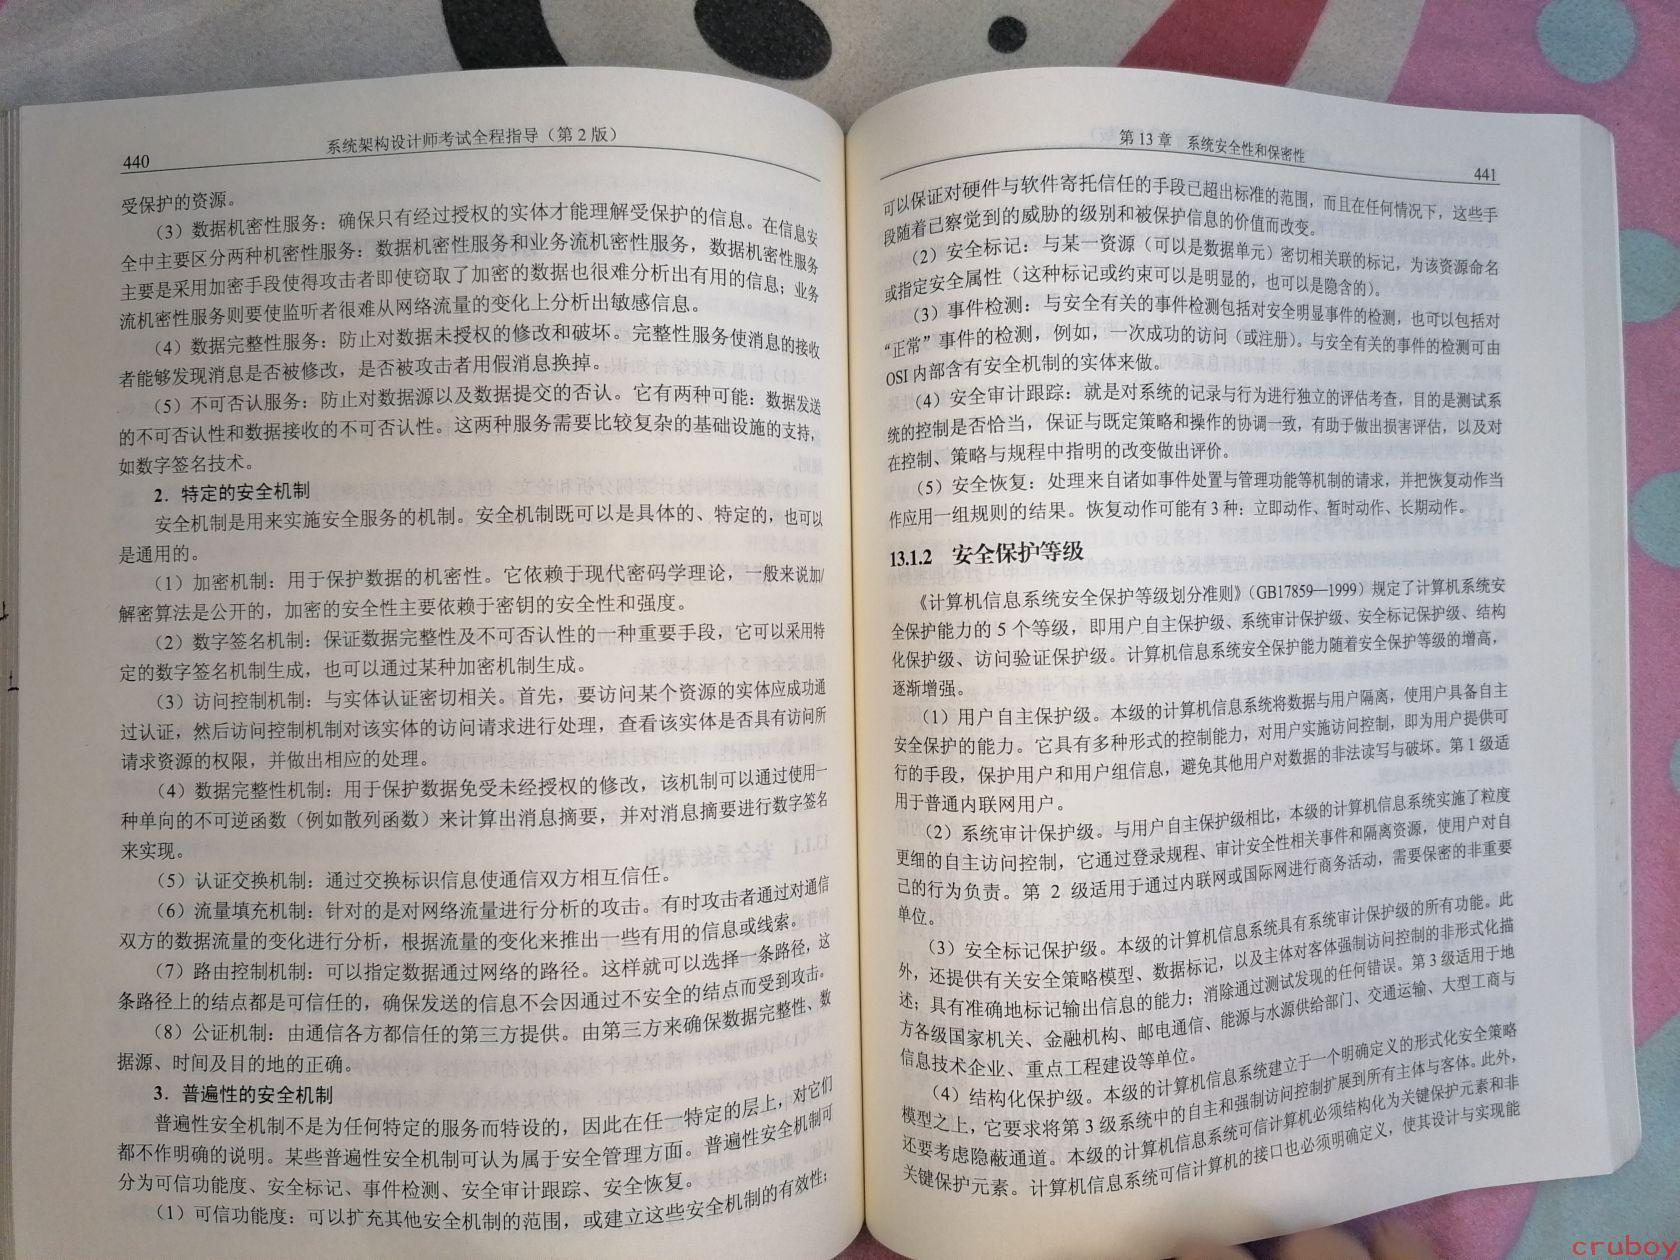 440
系统架构设计师考试全程指导（第 2 版）
受保护的资源。
（3）数据机密性服务：确保只有经过授权的实体才能理解受保护的信息。在信息安
全中主要区分两种机密性服务：数据机密性服务和业务流机密性服务，数据机密性服务
主要是采用加密手段使得攻击者即使窃取了加密的数据也很难分析出有用的信息；业务
流机密性服务则要使监听者很难从网络流量的变化上分析出敏感信息。
（4）数据完整性服务：防止对数据未授权的修改和破坏。完整性服务使消息的接收
者能够发现消息是否被修改，是否被攻击者用假消息换掉。
（5）不可否认服务：防止对数据源以及数据提交的否认。它有两种可能：数据发送
的不可否认性和数据接收的不可否认性。这两种服务需要比较复杂的基础设施的支持，
如数字签名技术。
2．特定的安全机制
安全机制是用来实施安全服务的机制。安全机制既可以是具体的、特定的，也可以
是通用的。
（1）加密机制：用于保护数据的机密性。它依赖于现代密码学理论，一般来说加/
解密算法是公开的，加密的安全性主要依赖于密钥的安全性和强度。
（2）数字签名机制：保证数据完整性及不可否认性的一种重要手段，它可以采用特
定的数字签名机制生成，也可以通过某种加密机制生成。
（3）访问控制机制：与实体认证密切相关。首先，要访问某个资源的实体应成功通
过认证，然后访问控制机制对该实体的访问请求进行处理，查看该实体是否具有访问所
请求资源的权限，并做出相应的处理。
（4）数据完整性机制：用于保护数据免受未经授权的修改，该机制可以通过使用一
种单向的不可逆函数（例如散列函数）来计算出消息摘要，并对消息摘要进行数字签名
来实现。
（5）认证交换机制：通过交换标识信息使通信双方相互信任。
（6）流量填充机制：针对的是对网络流量进行分析的攻击。有时攻击者通过对通信
双方的数据流量的变化进行分析，根据流量的变化来推出一些有用的信息或线索。
（7）路由控制机制：可以指定数据通过网络的路径。这样就可以选择一条路径，这
条路径上的结点都是可信任的，确保发送的信息不会因通过不安全的结点而受到攻击。
（8）公证机制：由通信各方都信任的第三方提供。由第三方来确保数据完整性、数
据源、时间及目的地的正确。
3．普遍性的安全机制
普遍性安全机制不是为任何特定的服务而特设的，因此在任一特定的层上，对它们
都不作明确的说明。某些普遍性安全机制可认为属于安全管理方面。普遍性安全机制可
分为可信功能度、安全标记、事件检测、安全审计跟踪、安全恢复。
（1）可信功能度：可以扩充其他安全机制的范围，或建立这些安全机制的有效性；
第 13 章　系统安全性和保密性
441
可以保证对硬件与软件寄托信任的手段已超出标准的范围，而且在任何情况下，这些手
段随着已察觉到的威胁的级别和被保护信息的价值而改变。
（2）安全标记：与某一资源（可以是数据单元）密切相关联的标记，为该资源命名
或指定安全属性（这种标记或约束可以是明显的，也可以是隐含的）。
（3）事件检测：与安全有关的事件检测包括对安全明显事件的检测，也可以包括对
“正常”事件的检测，例如，一次成功的访问（或注册）。与安全有关的事件的检测可由
OSI 内部含有安全机制的实体来做。
（4）安全审计跟踪：就是对系统的记录与行为进行独立的评估考查，目的是测试系
统的控制是否恰当，保证与既定策略和操作的协调一致，有助于做出损害评估，以及对
在控制、策略与规程中指明的改变做出评价。
（5）安全恢复：处理来自诸如事件处置与管理功能等机制的请求，并把恢复动作当
作应用一组规则的结果。恢复动作可能有 3 种：立即动作、暂时动作、长期动作。
13.1.2　安全保护等级
《计算机信息系统安全保护等级划分准则》（GB17859—1999）规定了计算机系统安
全保护能力的 5 个等级，即用户自主保护级、系统审计保护级、安全标记保护级、结构
化保护级、访问验证保护级。计算机信息系统安全保护能力随着安全保护等级的增高，
逐渐增强。
（1）用户自主保护级。本级的计算机信息系统将数据与用户隔离，使用户具备自主
安全保护的能力。它具有多种形式的控制能力，对用户实施访问控制，即为用户提供可
行的手段，保护用户和用户组信息，避免其他用户对数据的非法读写与破坏。第 1 级适
用于普通内联网用户。
（2）系统审计保护级。与用户自主保护级相比，本级的计算机信息系统实施了粒度
更细的自主访问控制，它通过登录规程、审计安全性相关事件和隔离资源，使用户对自
己的行为负责。第 2 级适用于通过内联网或国际网进行商务活动，需要保密的非重要
单位。
（3）安全标记保护级。本级的计算机信息系统具有系统审计保护级的所有功能。此
外，还提供有关安全策略模型、数据标记，以及主体对客体强制访问控制的非形式化描
述；具有准确地标记输出信息的能力；消除通过测试发现的任何错误。第 3 级适用于地
方各级国家机关、金融机构、邮电通信、能源与水源供给部门、交通运输、大型工商与
信息技术企业、重点工程建设等单位。
（4）结构化保护级。本级的计算机信息系统建立于一个明确定义的形式化安全策略
模型之上，它要求将第 3 级系统中的自主和强制访问控制扩展到所有主体与客体。此外，
还要考虑隐蔽通道。本级的计算机信息系统可信计算机必须结构化为关键保护元素和非
关键保护元素。计算机信息系统可信计算机的接口也必须明确定义，使其设计与实现能
cruboy